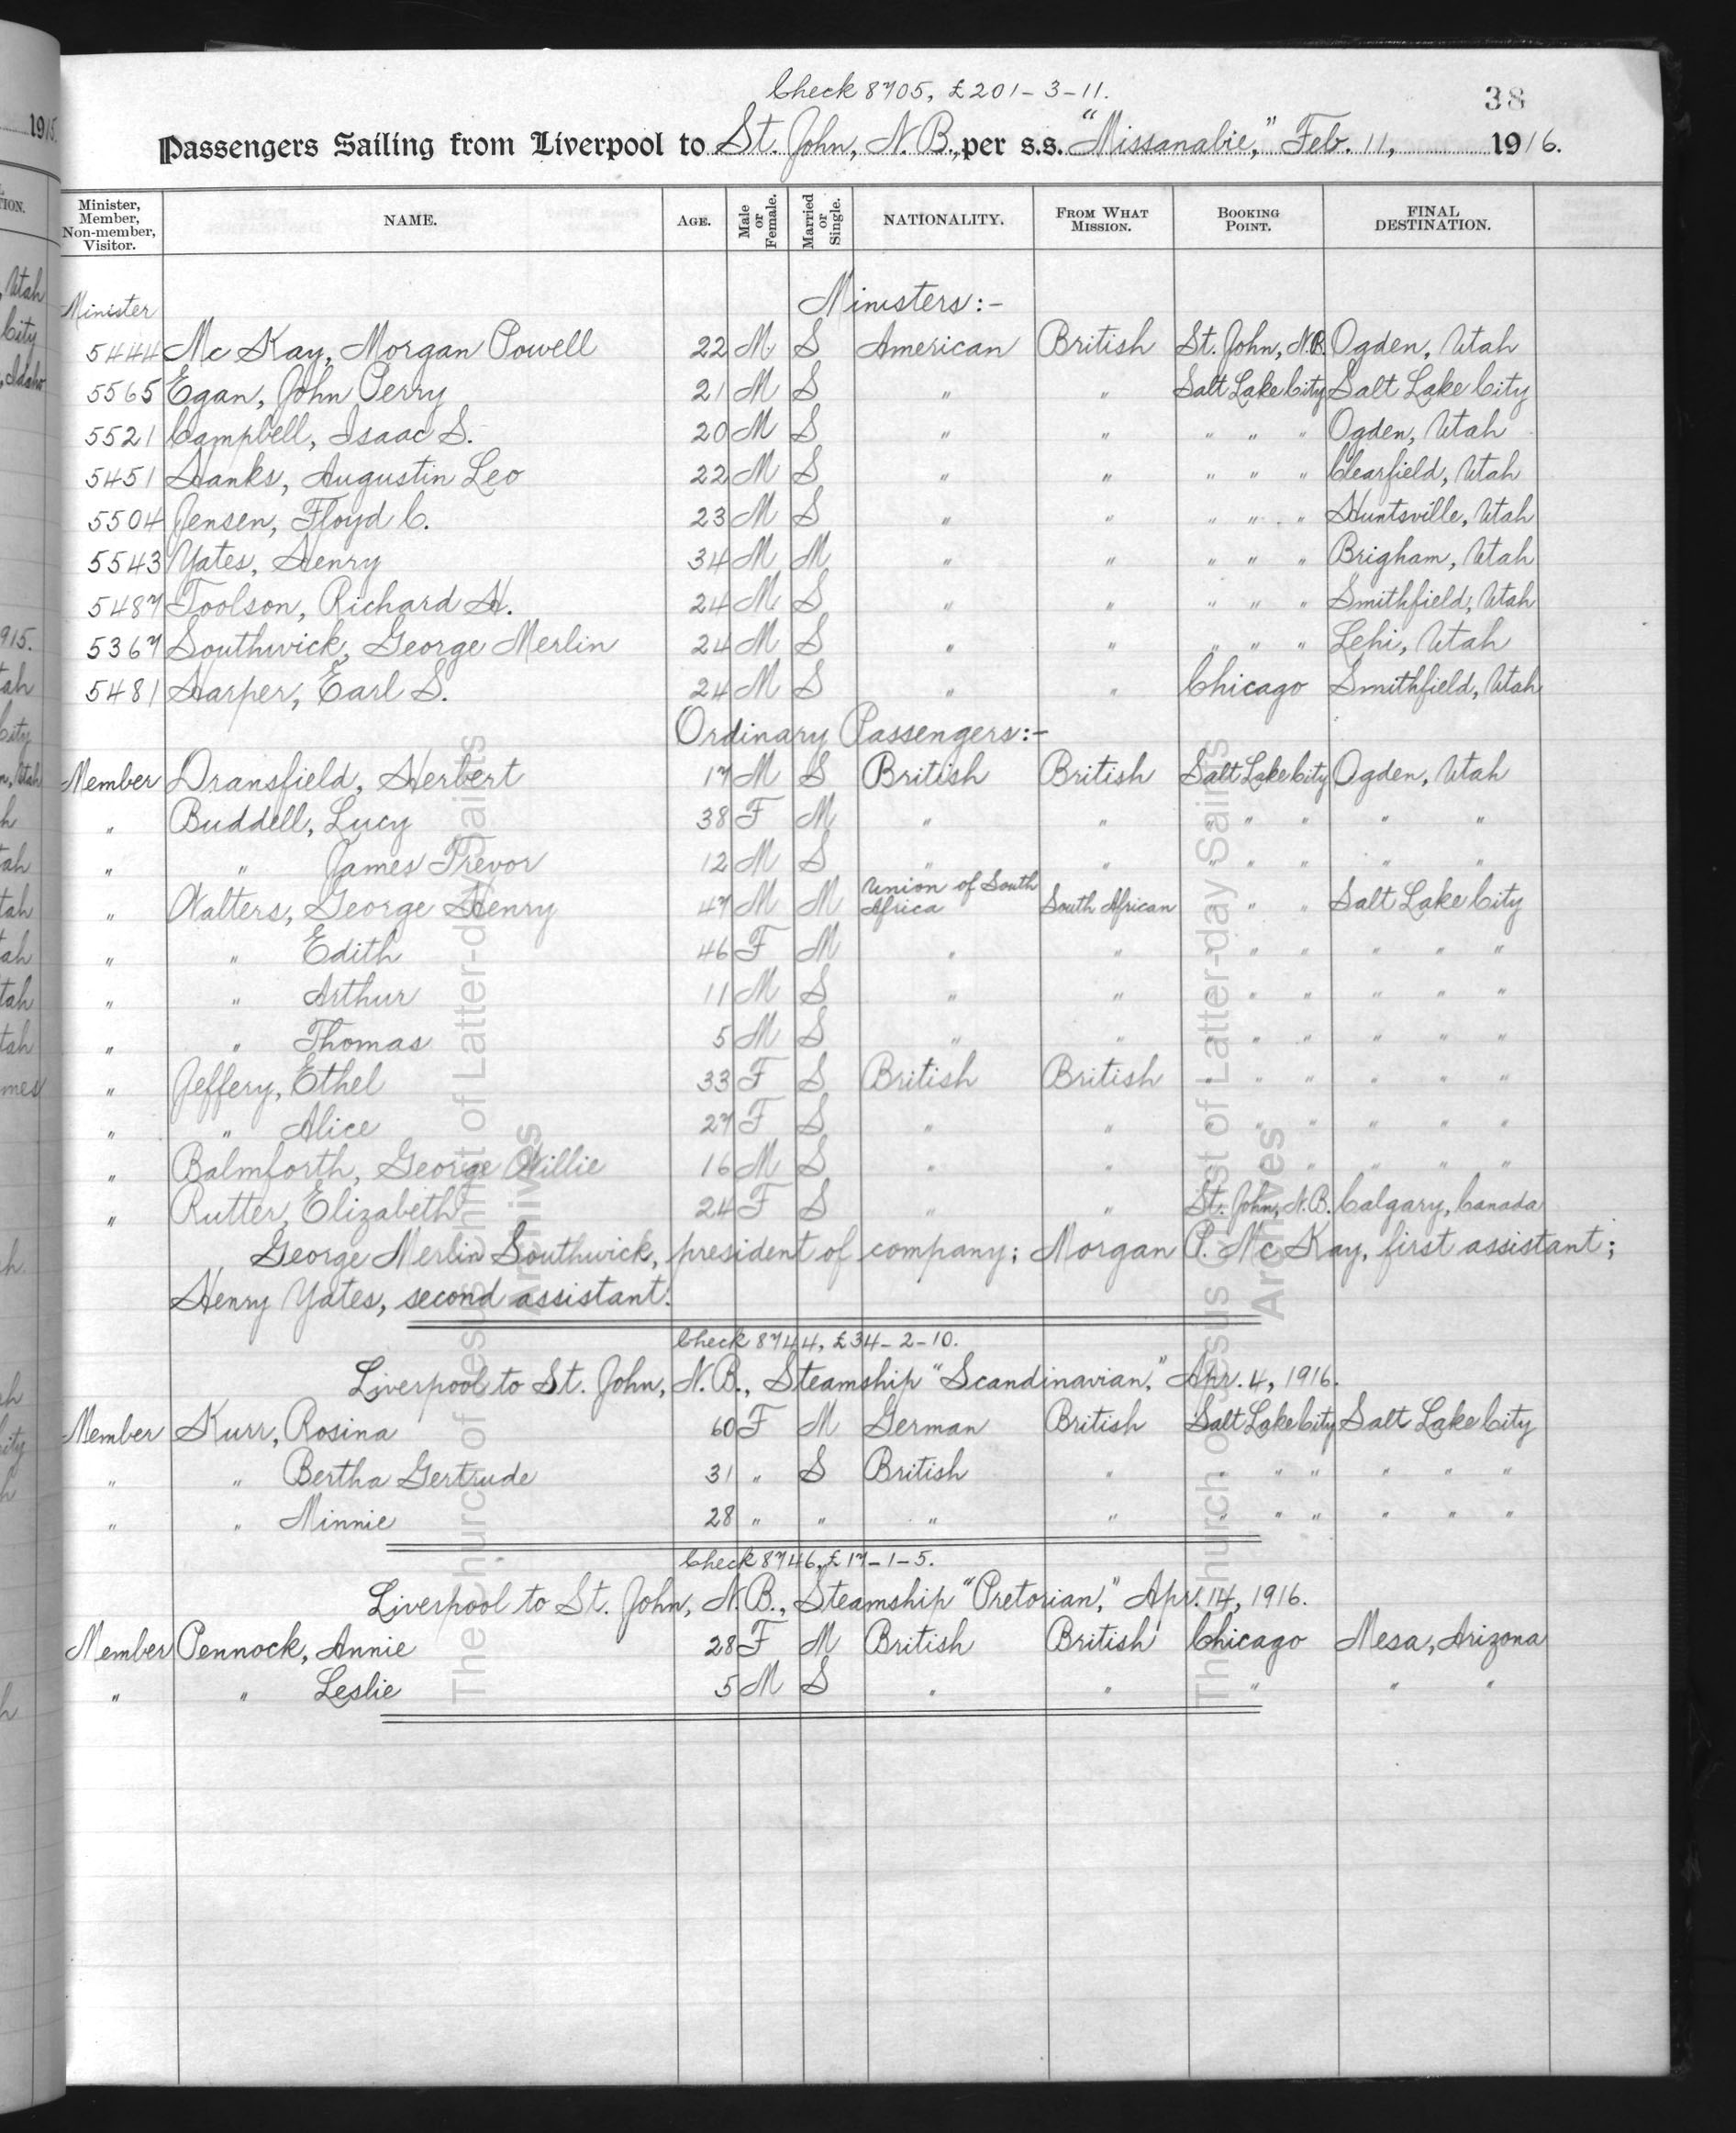 Check 8705, £201-3-11.
38
Passengers Sailing from Liverpool to St. John, N.B., per s.s. "Missanabie," Feb. 11, 1916.
Minister, Member, Non-member, Visitor. NAME. AGE. Male or Female. Married or Single. NATIONALITY. FROM WHAT MISSION. BOOKING POINT. FINAL DESTINATION.
Minister Ministers:-
5444 McKay, Morgan Powell 22 M S American British St. John, N.B. Ogden, Utah
5565 Egan, John Perry 21 M S " " Salt Lake City Salt Lake City
5521 Campbell, Isaac S. 20 M S " " " " " Ogden, Utah
5451 Hanks, Augustin Leo 22 M S " " " " " Clearfield, Utah
5504 Jensen, Floyd C. 23 M S " " " " " Huntsville, Utah
5543 Yates, Henry 34 M M " " " " " Brigham, Utah
5487 Toolson, Richard H. 24 M S " " " " " Smithfield, Utah
5367 Southwick, George Merlin 24 M S " " " " " Lehi, Utah
5481 Harper, Earl S. 24 M S " " Chicago Smithfield, Utah
Ordinary Passengers:-
Member Dransfield, Herbert 17 M S British British Salt Lake City Ogden, Utah
" Buddell, Lucy 38 F M " " " " " " "
" " James Trevor 12 M S " " " " " " "
" Walters, George Henry 47 M M Union of South Africa South African " " " Salt Lake City
" " Edith 46 F M " " " " " " " "
" " Arthur 11 M S " " " " " " " "
" " Thomas 5 M S " " " " " " " "
" Jeffery, Ethel 33 F S British British " " " " " "
" " Alice 27 F S " " " " " " " "
" Balmforth, George Willie 16 M S " " " " " " " "
" Rutter, Elizabeth 24 F S " " St. John, N.B. Calgary, Canada
George Merlin Southwick, president of company; Morgan P. McKay, first assistant;
Henry Yates, second assistant.
Check 8744, £34-2-10.
Liverpool to St. John, N.B., Steamship "Scandinavian," Apr. 4, 1916.
Member Kurr, Rosina 60 F M German British Salt Lake City Salt Lake City
" " Bertha Gertrude 31 " S British " " " " " " "
" " Minnie 28 " " " " " " " " " "
Check 8746, £17-1-5.
Liverpool to St. John, N.B., Steamship "Pretorian," Apr. 14, 1916.
Member Pennock, Annie 28 F M British British Chicago Mesa, Arizona
" " Leslie 5 M S " " " " "
The Church of Jesus Christ of Latter-day Saints
Archives
The Church of Jesus Christ of Latter-day Saints
Archives